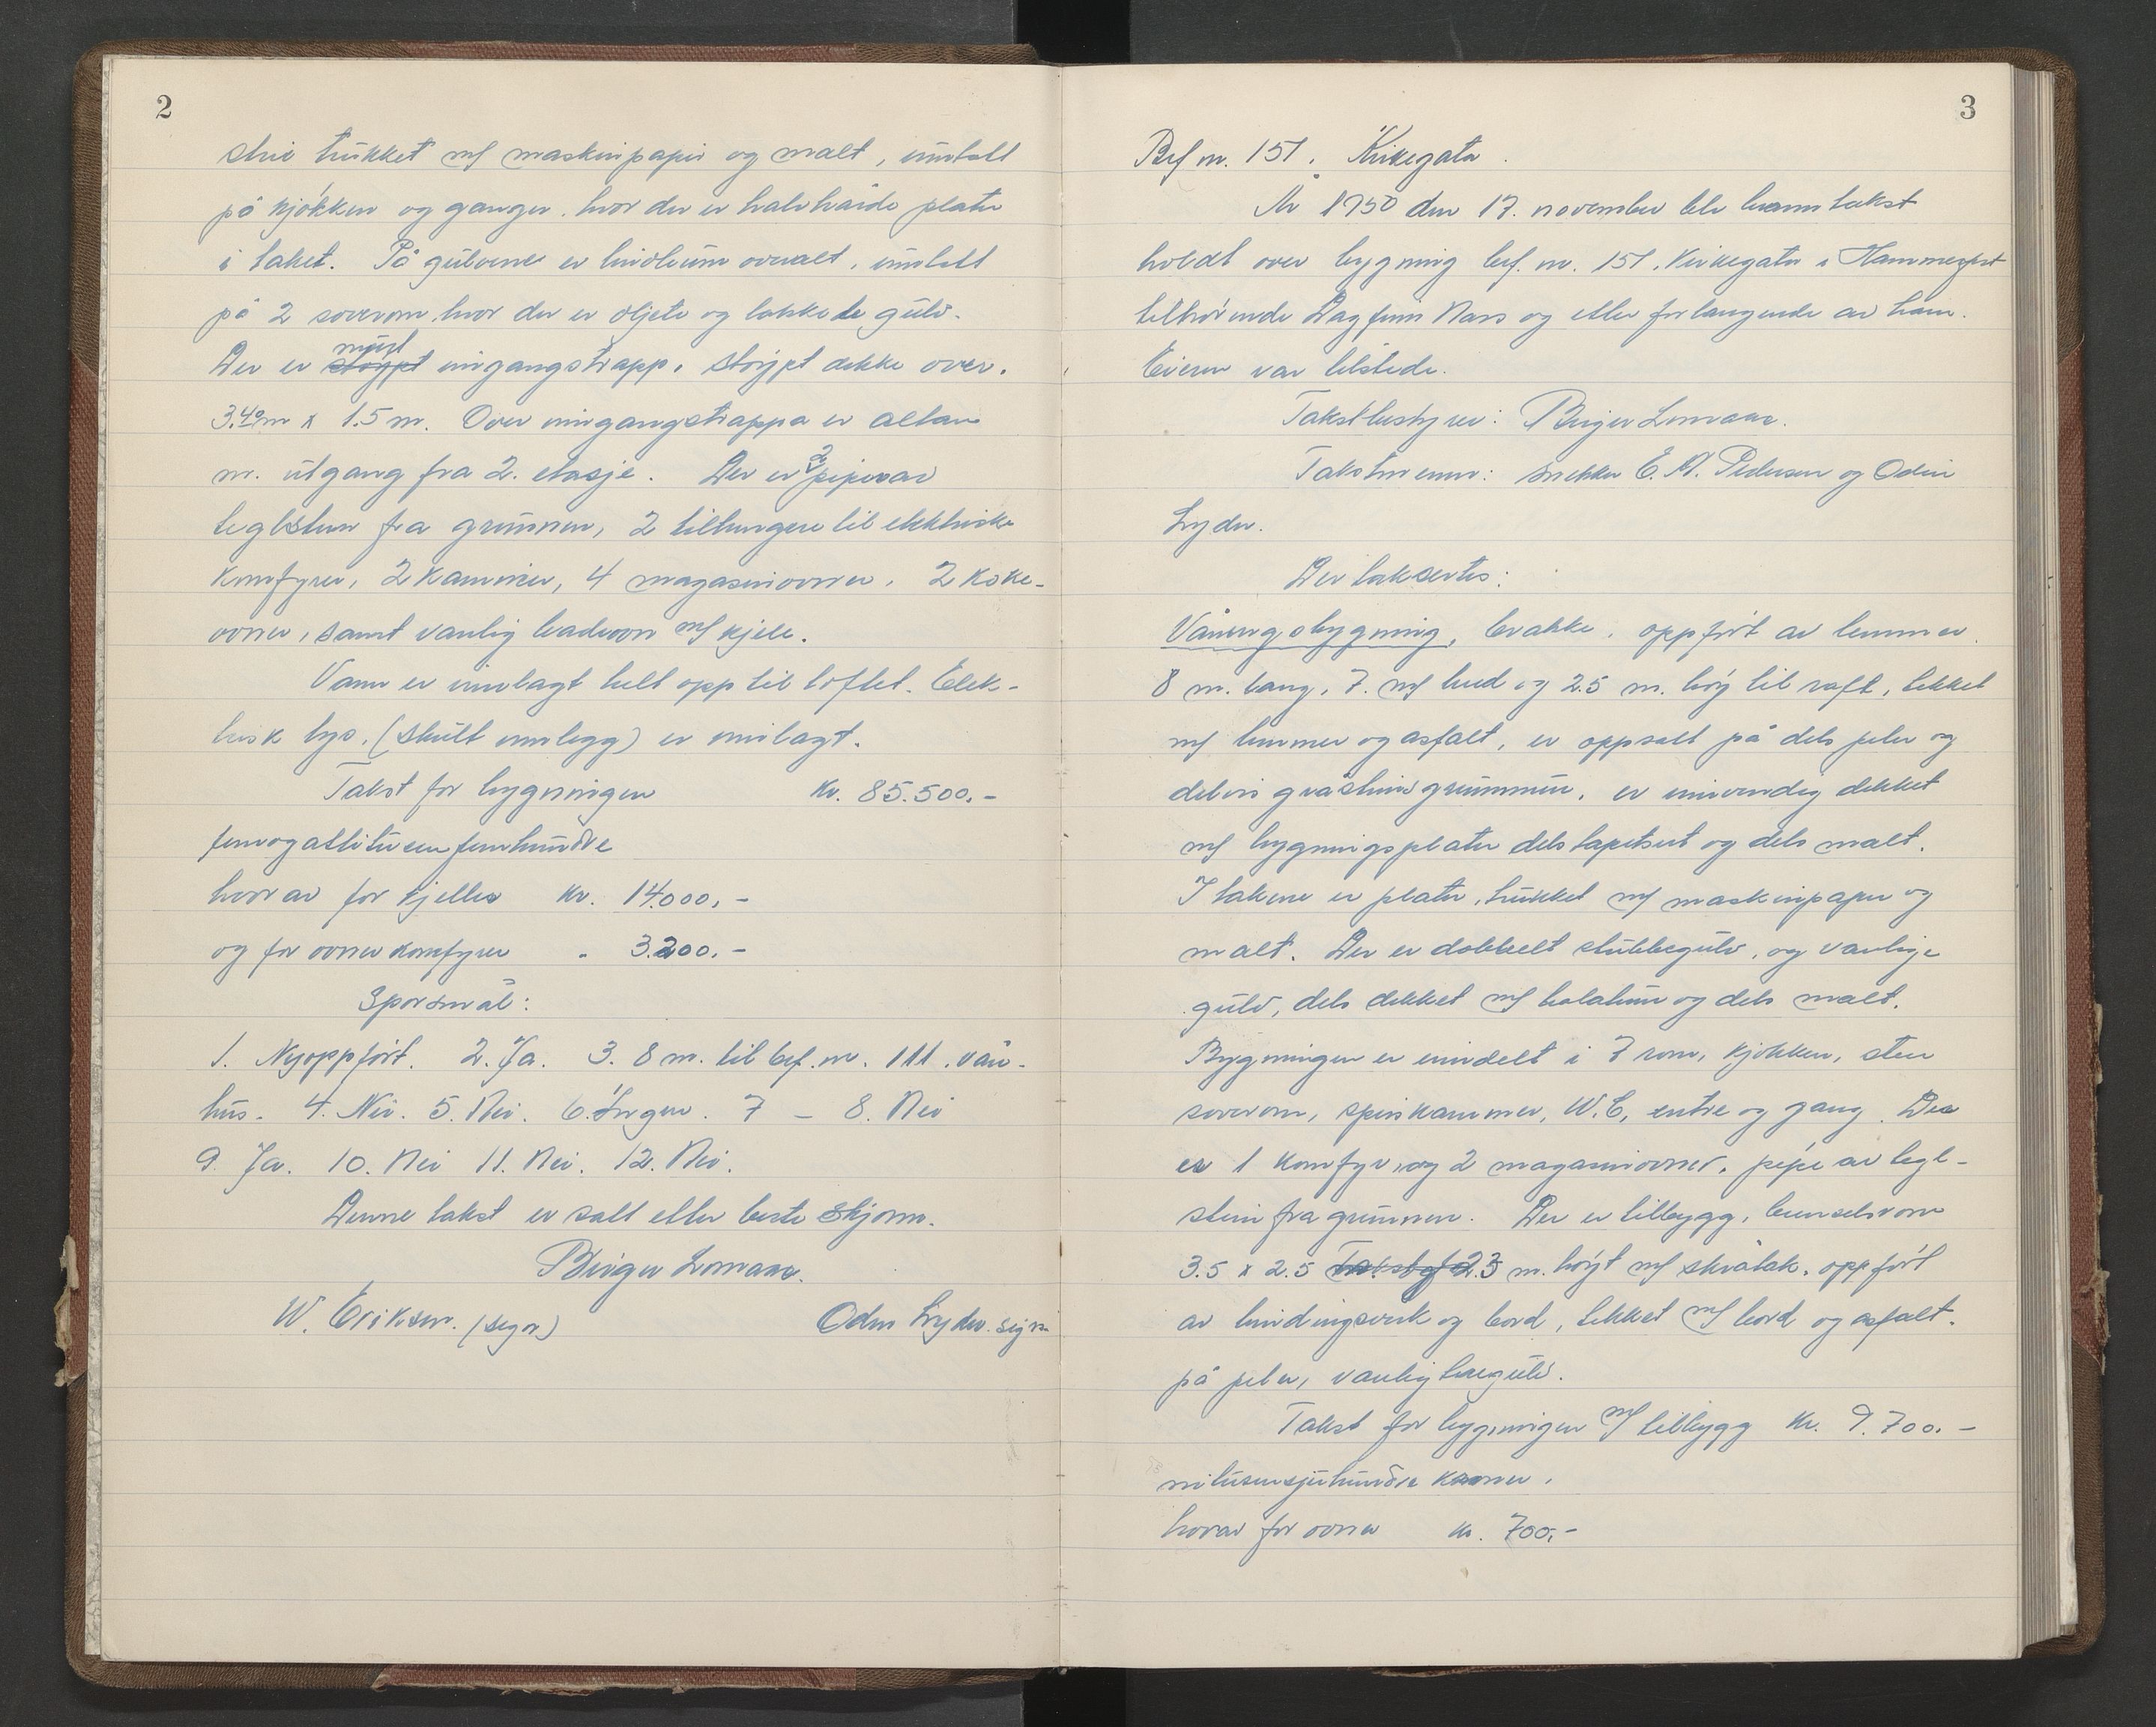 2
strie trukket m/ maskinpapir og malt, unntatt
på kjøkken og ganger, hvor der er halvhårde plater
i taket. På gulvene er linoleum overalt, unntatt
på 2 soverom, hvor der er oljete og lakkede gulv.
Der er støypt muret inngangstrapp, støypt dekke over.
3.40m x 1.5 m. Over inngangstrappa er altan
m. utgang fra 2. etasje. Der er 2 piper av
teglsten fra grunnen, 2 tilhengere til elektriske
komfyrer, 2 kaminer, 4 magasinovner, 2 koke-
ovner, samt vanlig badeovn m/ kjele.
Vann er innlagt helt opp til loftet. Elek-
trisk lys, (skult innlegg) er innlagt.
Takst for bygningen Kr. 85.500.-
femogåttitusenfemhundre
hvorav for kjeller Kr. 14.000.-
og for ovner komfyrer " 3.200.-
Spørsmål:
1. Nyoppført. 2. Ja. 3. 8 m. til bef. nr. 111. vån-
hus. 4. Nei. 5. Nei. 6. Ingen. 7 - 8. Nei
9. Ja. 10. Nei 11. Nei. 12. Nei.
Denne takst er satt etter beste skjønn.
Birger Lomaas.
W. Eriksen. (sign) Odin Lyder. sign
3
Bef nr. 151. Kirkegata.
År 1950 den 17. november ble branntakst
holdt over bygning bef. nr. 151. Kirkegata i Hammerfest
tilhørende Dagfinn Næss og etter forlangende av ham.
Eieren var tilstede.
Takstbestyrer: Birger Lomaas.
Takstmenn: snekker E. A. Pedersen og Odin
Lyder.
Der taksertes:
Våningsbygning, brakke, oppført av lemmer.
8 m. lang, 7. m/ bred og 2.5 m. høy til raft, tekket
m/ lemmer og asfalt, er oppsatt på dels peler og
delvis gråsteinsgrunnmur, er innvendig dekket
m/ bygningsplater dels tapetsert og dels malt.
I takene er plater, trukket m/ maskinpapir og
malt. Der er dobbelt stubbegulv, og vanlige
gulv, dels dekket m/ balatum og dels malt.
Bygningen er inndelt i 7 rom, kjøkken, stue
soverom, spiskammer, W.C, entre og gang. Der
er 1 komfyr, og 2 magasinovner, pipe av tegl-
stein fra grunnen. Der er tilbygg, brenselsrom
3.5 x 2.5 2.3 m. høyt m/ skråtak, oppført
av bindingsverk og bord, tekket m/ bord og asfalt.
på peler, vanlig tregulv.
Takst for bygningen m/ tilbygg Kr. 9.700.-
nitusensjuhundre kroner.
hvorav for ovner kr. 700.-